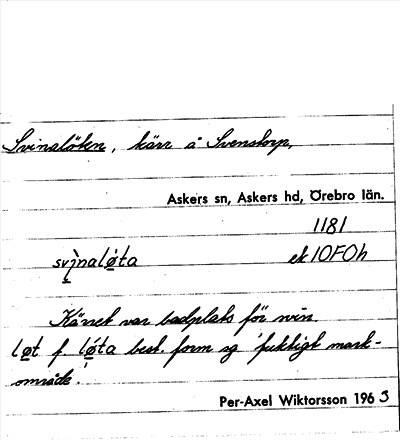 Svinalöten, kärr å Svenstorp,
Askers sn, Askers hd, Örebro län.
1181
svì̖nalǿta ek 10F0h
Kärret var badplats för svin.
løt f. lǿta best. form sg 'fuktigt mark-
område'.
Per-Axel Wiktorsson 1963